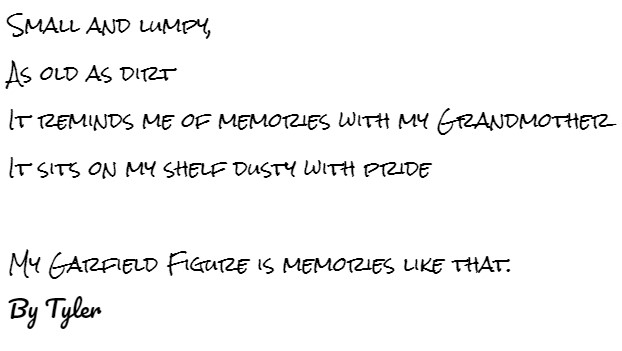 Small and lumpy,
As old as dirt
It reminds me of memories with my Grandmother
It sits on my shelf dusty with pride
My Garfield Figure is memories like that.
By Tyler